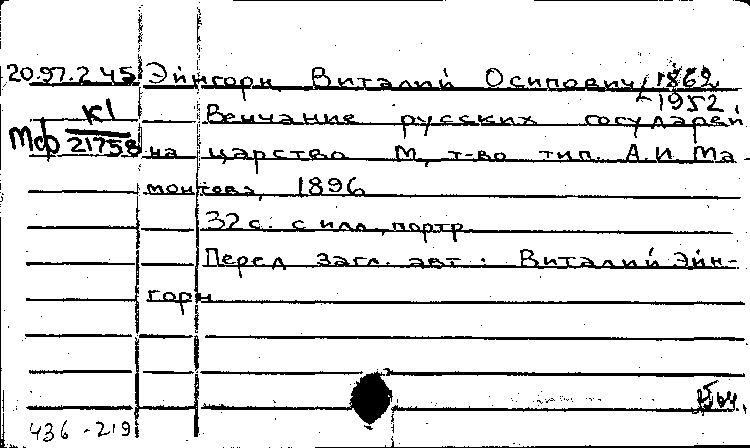 20.97.2 45 Эйнгорн, Виталий Осипович, 1862
-1952
К1 Венчание русских государей
Мф 21758 на царство М, т-во тип. А.И. Ма-
монтова, 1896
32 с. с илл., портр.
Перед загл. авт.: Виталий Эйн-
горн
436-219